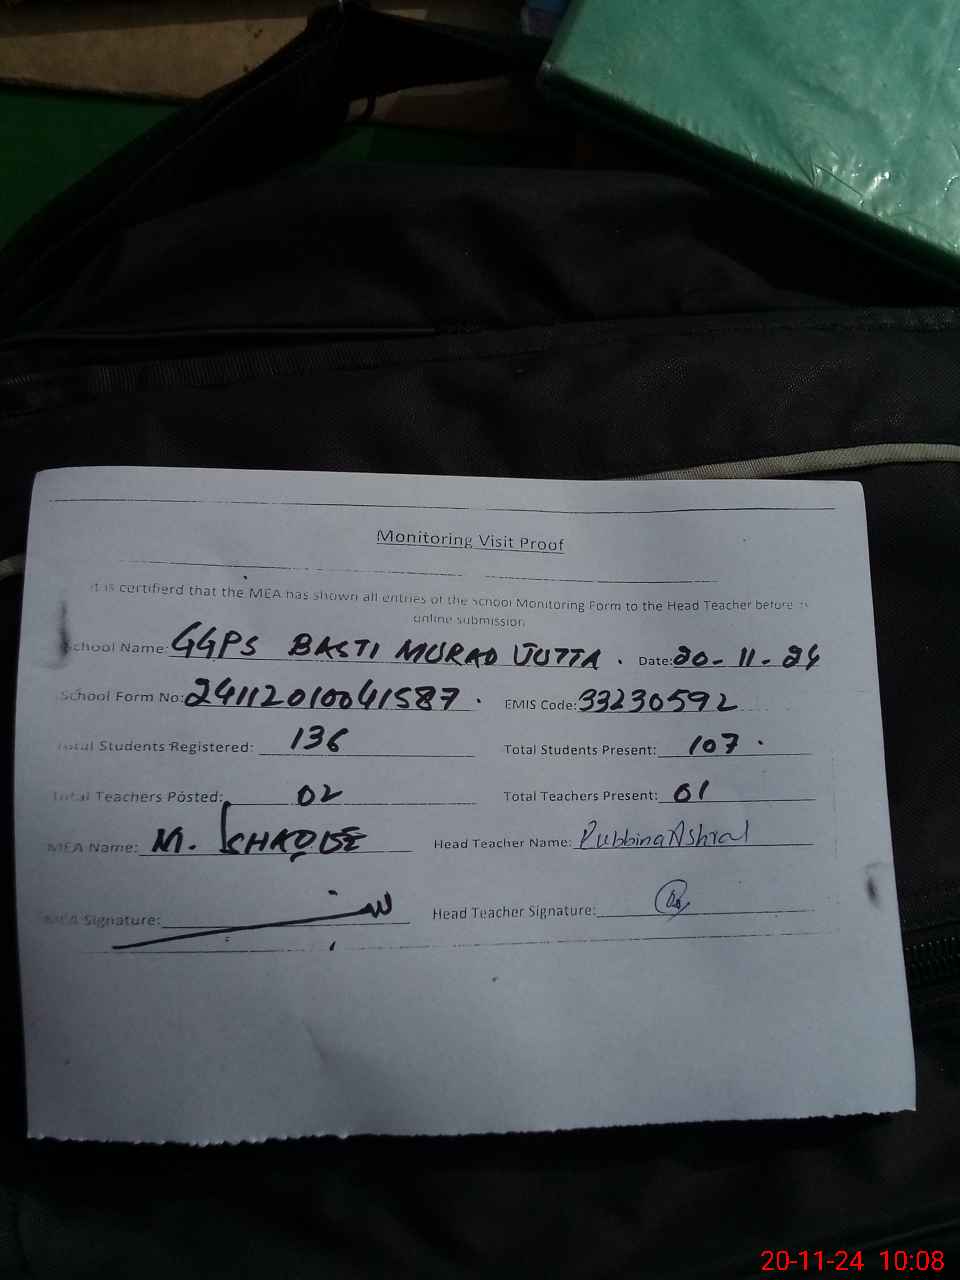 Monitoring Visit Proof
It is certifierd that the MEA has shown all entries of the School Monitoring Form to the Head Teacher before
online submission
School Name: GGPS BASTI MURAD JUTTA . Date: 20-11-24
School Form No: 24112010041587 . EMIS Code: 33230592
Total Students Registered: 136 Total Students Present: 107 .
Total Teachers Posted: 02 Total Teachers Present: 01
MEA Name: M. Head Teacher Name: Ashraf
MEA Signature: Head Teacher Signature:
20-11-24 10:08